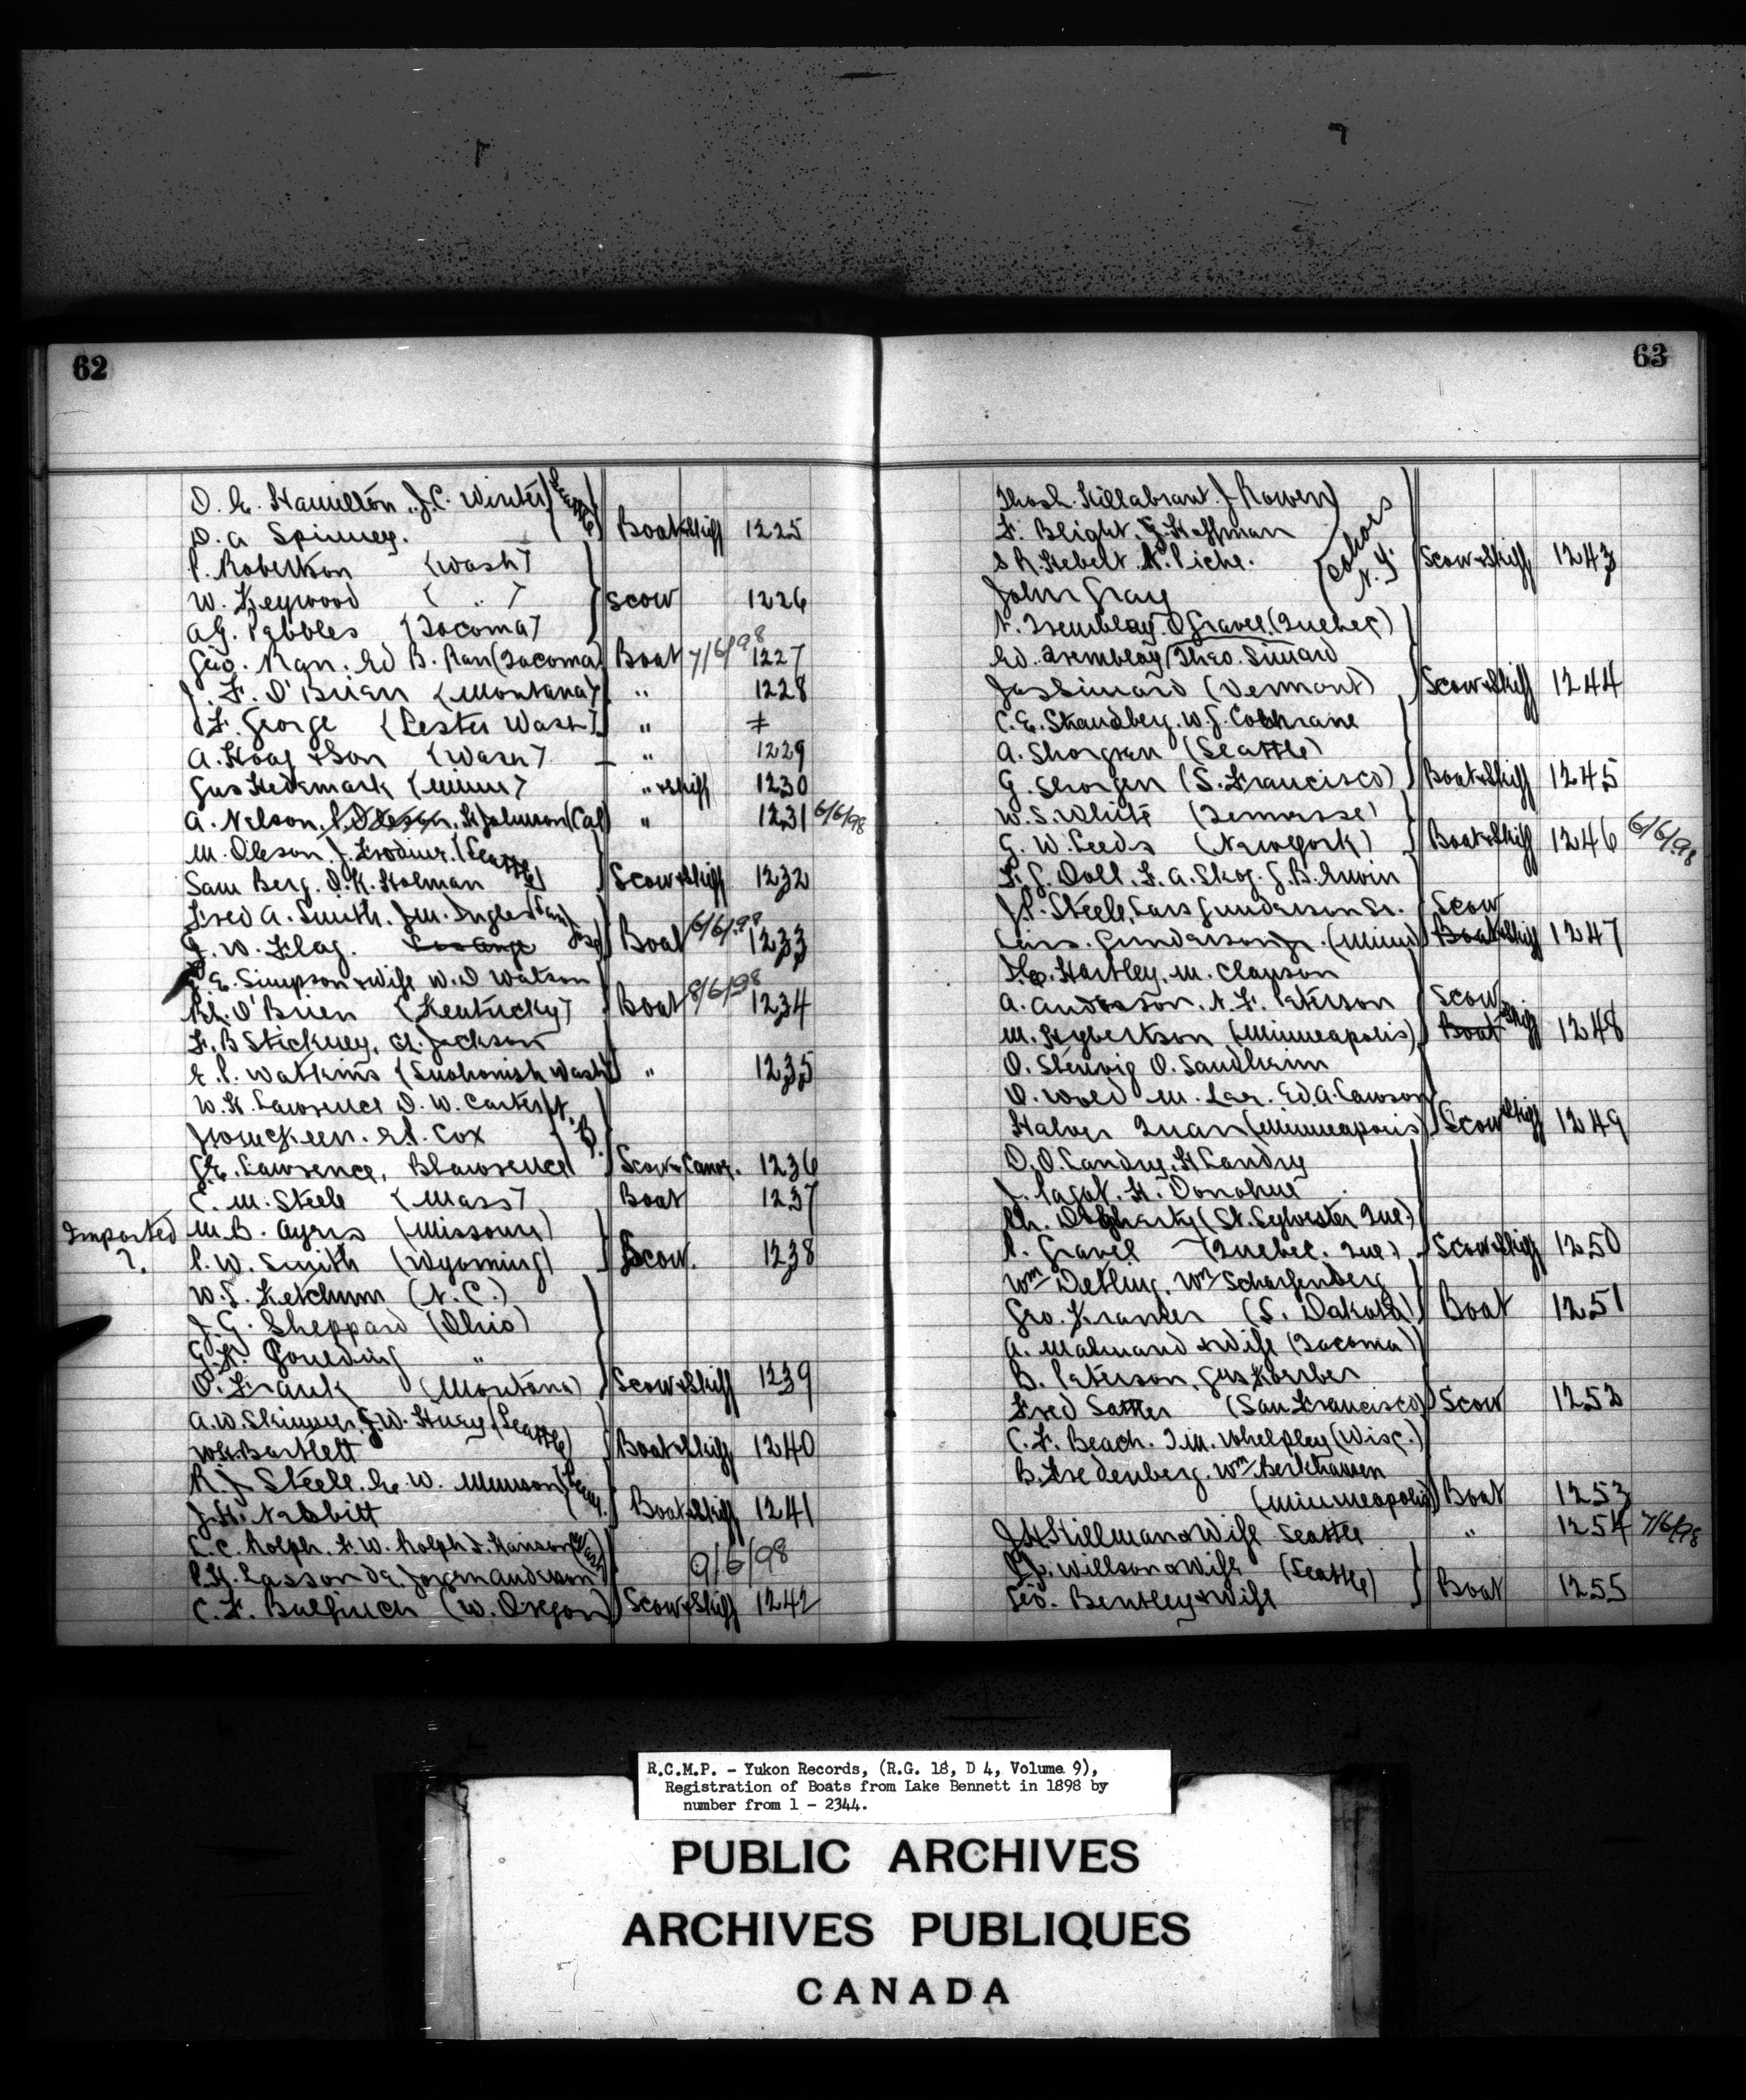 62
D. E. Hamilton. J. C. Winter (Seattle)
D. A Spinney. Boat & Skiff 1225
P. Robertson (Wash)
W. Keywood ( " ) Scow 1226
A G. Pebbles (Tacoma)
Geo. Ran. Ed B. Ran (Tacoma) Boat 7/6/98 1227
J. F. O'Brien (Montana) " 1228
F. George (Lester Wash) " ≠
A. Hoag & Son (Wash) " 1229
Gus Hedemark (Minn) " & Skiff 1230
A. Nelson, H Johnson (Cal) " 1231 6/6/98
M. Oleson J. (Seattle)
Sam Berg. O. K. Holman Scow & Skiff 1232
Fred A. Smith. J M. Ingles (San Jose)
G. W. Flag. Boat 6/6/98 1233
E. Simpson & Wife W. D Watson
O'Brien (Kentucky) Boat 8/6/98 1234
F. B Stickney, Jackson
E. P. Watkins (Snohomish Wash) " 1235
W. H. Lawrence D. W. Carter
Cox
G. E. Lawrence, B Lawrence Scow & Canoe. 1236
C. M. Steele (Mass) Boat 1237
Imported M. B. Ayris (Missouri)
?. P. W. Smith (Wyoming) Scow. 1238
W. S. Ketchum (N. C.)
J. G. Sheppard (Ohio)
G. K. Goulding "
O. Frank (Montana) Scow & Skiff 1239
A. W. Skinner, J. W. Huey (Seattle)
W H. Bartlett Boat & Skiff 1240
R. J Steele. Ge. W. Munson
J. H. Nesbitt Boat & Skiff 1241
C. C. Rolph. F. W. Rolph J. Hanson (Wash)
9/6/98
C. F. Bulfinch (W. Oregon) Scow & Skiff 1242
63
Thos L. Killabrant. J Rowen
F. Blight. G. Hoffman (Cohoes N. Y.
S R. Hebert. N. Piche. Scow & Skiff 1243
John Gray
N. Tremblay. O Gravel. (Quebec)
Ed. Tremblay Theo. Simard
Jas Simard (Vermont) Scow & Skiff 1244
C. E. Strandberg. W. J. Cochrane
A. Shorgren (Seattle)
G. Shorgen (S. Francisco) Boat & Skiff 1245
W. S. White (Tennesse)
G. W. Leeds (New York) Boat & Skiff 1246 6/6/98
F. J. Doll. F. A. Skog. J. B. Erwin
J. P. Steele, Lars Gunderson Sr. Scow
Lars. Gunderson Jr. (Minn) Boat & Skiff 1247
Hartley. M. Clawson
A. Anderson. N. F. Paterson Scow
M. Hybertson (Minneapolis) Boat Skiff 1248
O. Stenvig O. Sandheim
O. Wold M. Lee. Ed. A. Lawson
Halver Quan (Minneapolis) Scow & Skiff 1249
D. O. Landry. H Landry
J. Pagot. H. Donohue
Ch. Dogherty (St. Sylvester Que)
P. Gravel (Quebec. Que) Scow & Skiff 1250
Wm Detling. Wm Scharfenberg
Geo. Kramer (S. Dakota) Boat 1251
A. Malmand & Wife (Tacoma)
B. Paterson, Gus Koerber
Fred Sattler (San Francisco) Scow 1252
C. F. Beach. I. M. Whelpley (Wisc.)
B. Fredenberg. Wm Berkhausen
(Minneapolis) Boat 1253
J H Stillman & Wife Seattle " 1254 7/6/98
Willson & Wife (Seattle)
Geo. Bentley & Wife Boat 1255
R.C.M.P. - Yukon Records, (R.G. 18, D 4, Volume 9),
Registration of Boats from Lake Bennett in 1898 by
number from 1 - 2344.
PUBLIC ARCHIVES
ARCHIVES PUBLIQUES
CANADA